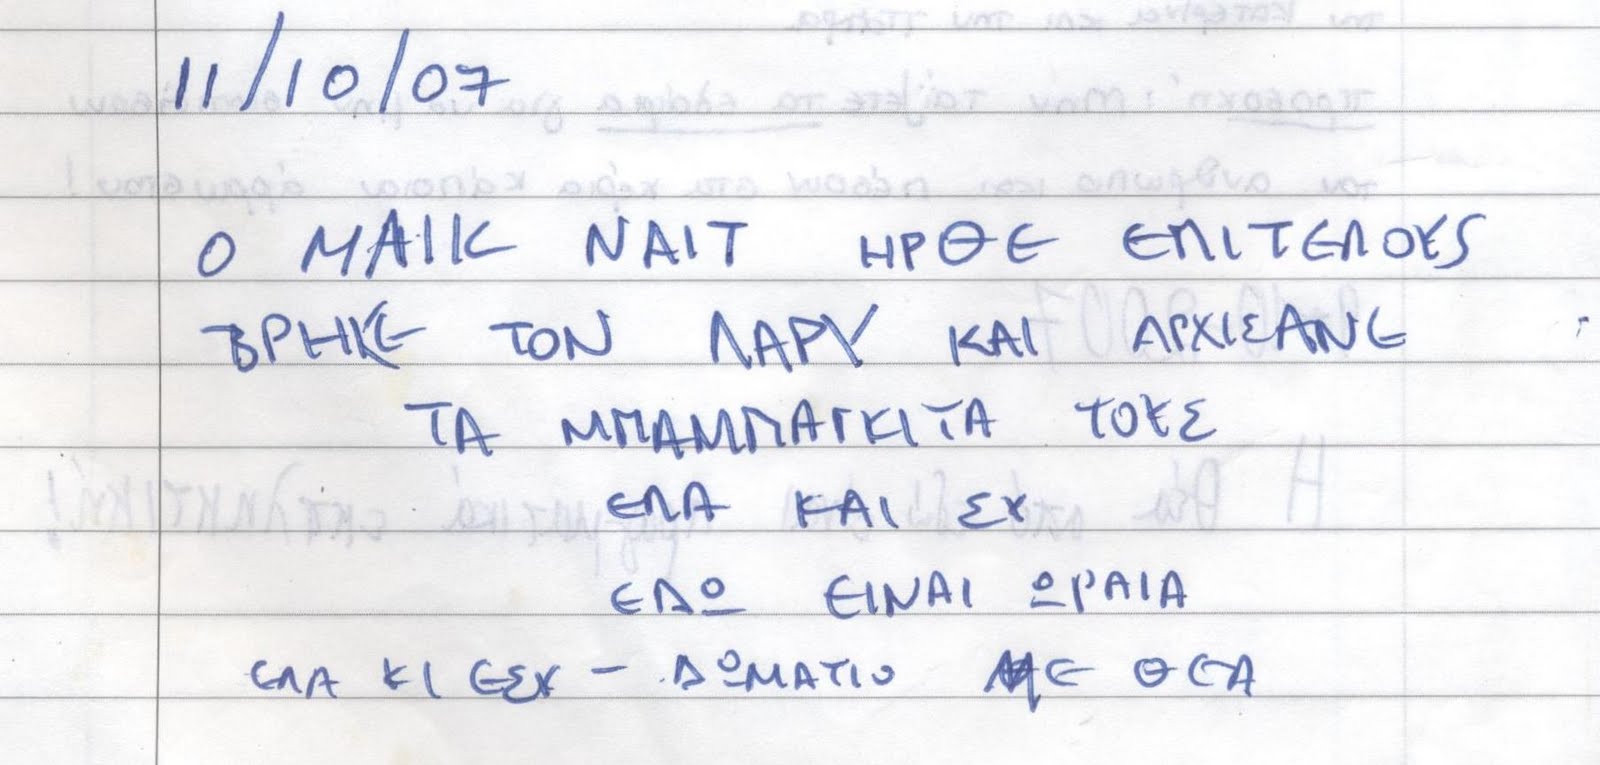 11/10/07
Ο ΜΑΙΚ ΝΑΙΤ ΗΡΘΕ ΕΠΙΤΕΛΟΥΣ
ΒΡΗΚΕ ΤΟΝ ΛΑΡΥ ΚΑΙ ΑΡΧΙΣΑΝΕ
ΤΑ ΜΠΑΜΠΑΓΚΙΤΑ ΤΟΥΣ
ΕΛΑ ΚΑΙ ΣΥ
ΕΔΩ ΕΙΝΑΙ ΩΡΑΙΑ
ΕΛΑ ΚΙ ΕΣΥ – ΔΩΜΑΤΙΟ ΜΕ ΘΕΑ